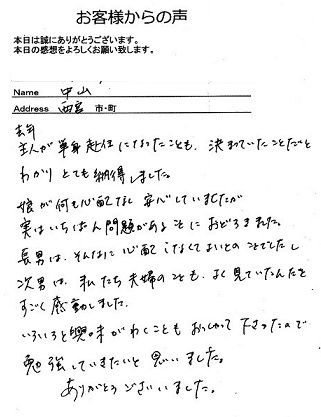 お客様からの声
本日は誠にありがとうございます。
本日の感想をよろしくお願い致します。
Name 中山
Address 西宮 市・町
去年
主人が単身赴任になったことも、決まっていたことだと
わかりとても納得しました。
娘が何も心配なし安心していましたが
実はいちばん問題があることにおどろきました。
長男は、そんなに心配しなくてよいとのことでしたし
次男は、私たち夫婦のことも、よく見ていたんだと
すごく感動しました。
いろいろと興味がわくこともおっしゃって下さったので
勉強していきたいと思いました。
ありがとうございました。